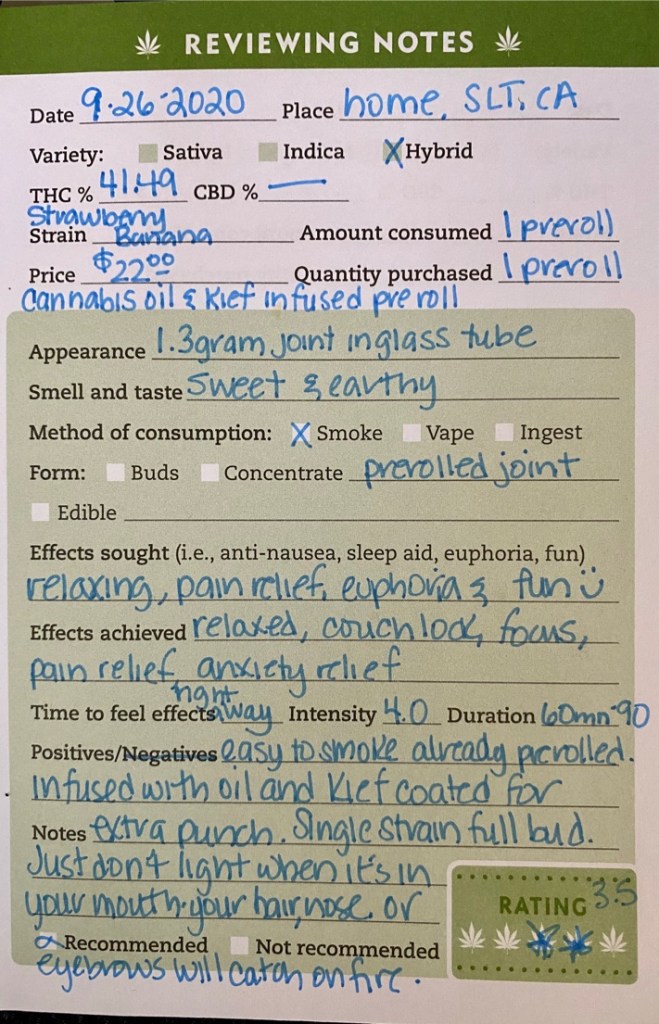 REVIEWING NOTES
Date 9.26.2020 Place home, SLT, CA
Variety: Sativa Indica X Hybrid
THC % 41.49 CBD % —
Strawberry
Strain Banana Amount consumed 1 preroll
Price $22.00 Quantity purchased 1 preroll
Cannabis oil & Kief infused preroll
Appearance 1.3gram joint in glass tube
Smell and taste Sweet & earthy
Method of consumption: X Smoke Vape Ingest
Form: Buds Concentrate prerolled joint
Edible
Effects sought (i.e., anti-nausea, sleep aid, euphoria, fun)
relaxing, pain relief, euphoria & fun
Effects achieved relaxed, couchlock, focus,
pain relief, anxiety relief
right
Time to feel effects away Intensity 4.0 Duration 60mn-90
Positives/Negatives easy to smoke already prerolled.
Infused with oil and Kief coated for
Notes extra punch. Single strain full bud.
Just don't light when it's in
your mouth. your hair, nose, or
RATING 3.5
Recommended Not recommended
eyebrows will catch on fire.